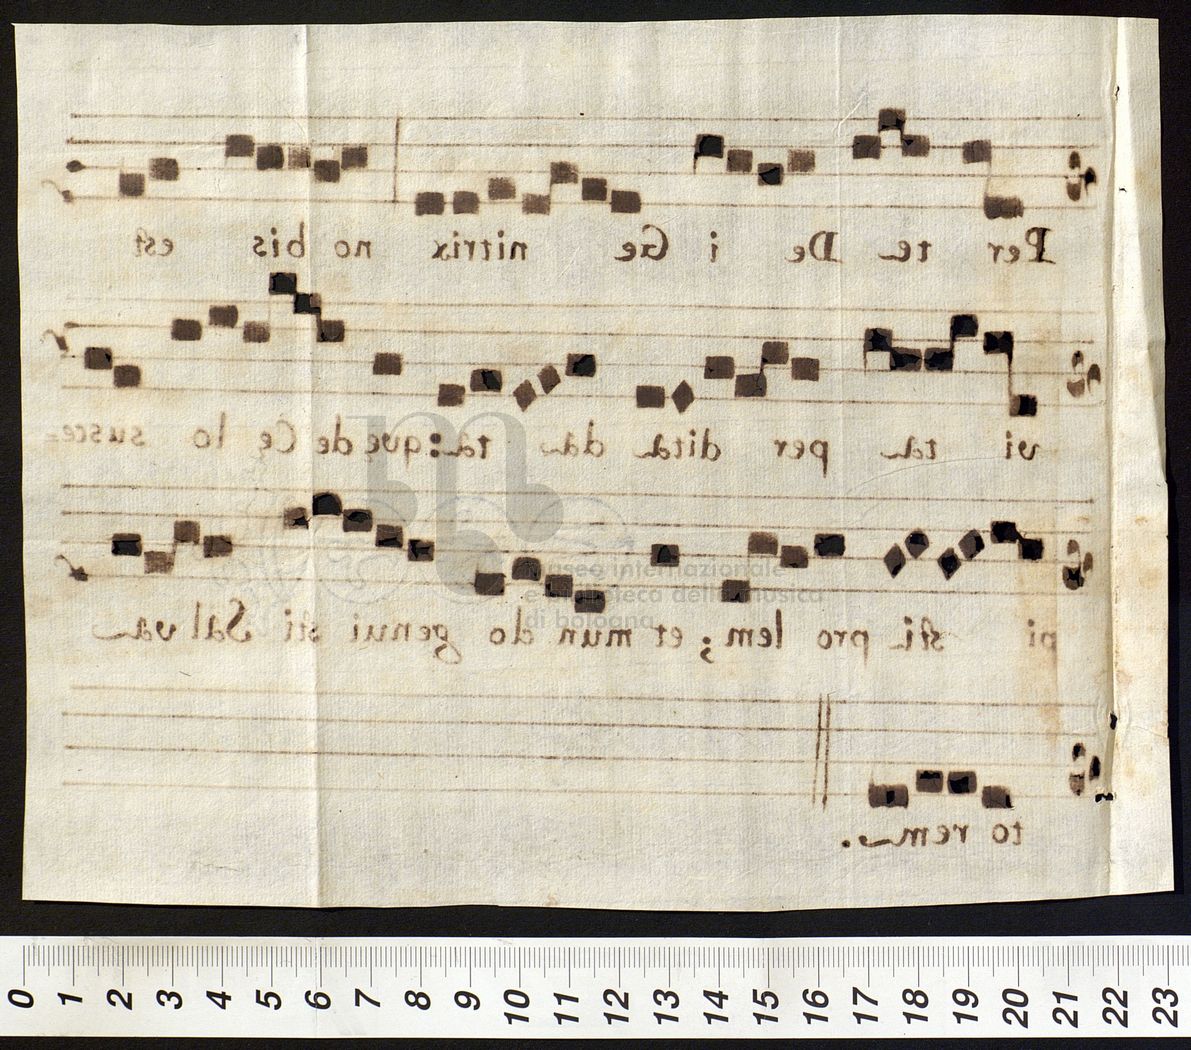 Per te De i Ge nitrix no bis est
vi ta per dita da ta: quę de Cę lo susce=
pi sti pro lem; et mun do genui sti Sal va
to rem.
museo internazionale
e biblioteca della musica
di bologna
0 1 2 3 4 5 6 7 8 9 10 11 12 13 14 15 16 17 18 19 20 21 22 23